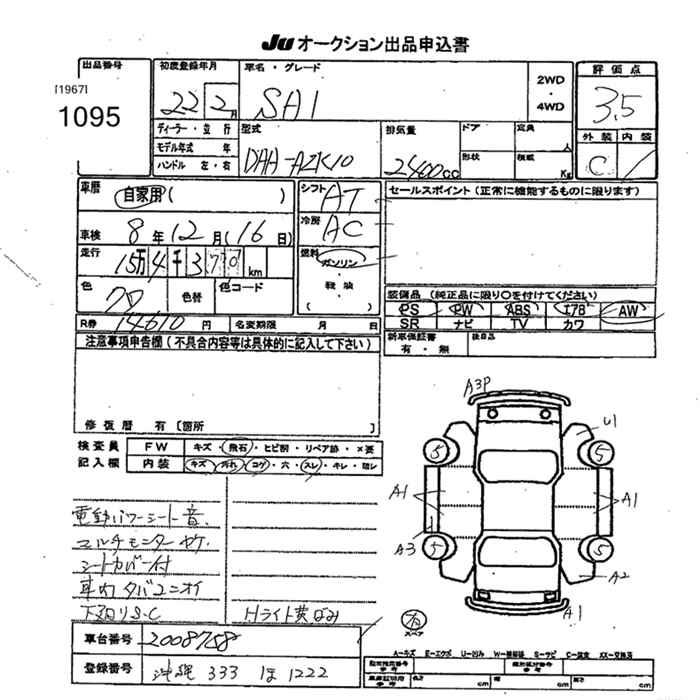 JU オークション出品申込書
出品番号
[1967]
1095
初度登録年月
22 2月
車名・グレード
SAI
2WD
・
4WD
評価点
3.5
外装 内装
C
ディーラー・並行
モデル年式 年
ハンドル 左・右
型式
DAA-AZK10
排気量
2400cc
ドア
形状
定員 人
積載 Kg
車歴
自家用( )
シフト AT
セールスポイント(正常に機能するものに限ります)
車検 8年12月(16日)
冷房 AC
走行 15万4千370km
燃料 ガソリン
・
軽油
( )
色
色替
色コード
装備品(純正品に限り○を付けてください)
PS PW ABS エアB AW
SR ナビ TV カワ
R券 14610円 名変期限 月 日
新車保証書
有・無
後日品
注意事項申告欄(不具合内容等は具体的に記入して下さい)
修復歴 有〔箇所
検査員
記入欄
FW キズ・飛石・ヒビ割・リペア跡・×要
内装 キズ・汚れ・コゲ・穴・スレ・キレ・
A3P
U1
5 5
A1 A1
A3
5 5
A2
A1
スペア
電動パワーシート音
マルチモニターヤケ
シートカバー付
車内タバコニオイ
下廻りS・C
Hライト黄ばみ
車台番号 2008758
登録番号 沖縄 333 ほ 1222
A-キズ E-エクボ U-凹み W-補修跡 S-サビ C-腐食 XX-交換済
cm cm cm